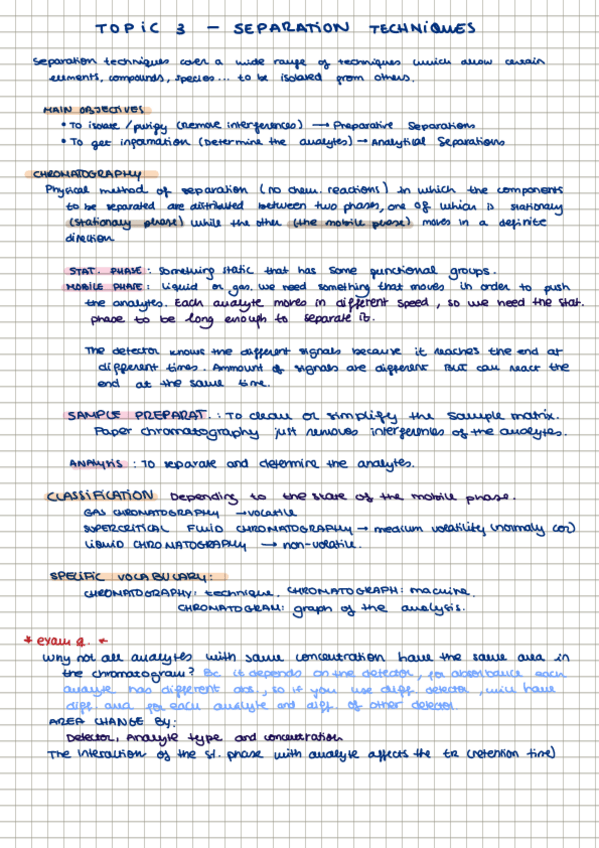 TOPIC 3 - SEPARATION TECHNIQUES
Separation techniques cover a wide range of techniques which allow certain
elements, compounds, species... to be isolated from others.
MAIN OBJECTIVES
• To isolate / purify (Remove interferences) → Preparative Separations
• To get information (Determine the analytes) → Analytical Separations
CHROMATOGRAPHY
Physical method of separation (no chem. reactions) in which the components
to be separated are distributed between two phases, one of which is stationary
(stationary phase) while the other (the mobile phase) moves in a definite
direction
STAT. PHASE: Something static that has some functional groups.
MOBILE PHASE: Liquid or gas. We need something that moves in order to push
the analytes. Each analyte moves in different speed, so we need the stat.
phase to be long enough to separate it.
The detector knows the different signals because it reaches the end at
different times. Ammount of signals are different but can react the
end at the same time.
SAMPLE PREPARAT.: To clean or simplify the sample matrix.
Paper chromatography just removes interferenies of the analytes.
ANALYSIS: To separate and determine the analytes.
CLASSIFICATION Depending to the state of the mobile phase.
GAS CHROMATOGRAPHY → volatile
SUPERCRITICAL FLUID CHROMATOGRAPHY → medium volatility (normaly CO2)
LIQUID CHROMATOGRAPHY → non-volatile.
SPECIFIC VOCABULARY:
CHROMATOGRAPHY: technique. CHROMATOGRAPH: machine.
CHROMATOGRAM: graph of the analysis.
* exam q. *
Why not all analytes with same concentration have the same area in
the chromatogram? Bc it depends on the detector, for absorbance each
analyte has different abs, so if you use diff. detector, will have
diff. area for each analyte and diff. of other detector.
AREA CHANGE BY:
Detector, Analyte type and concentration
The interaction of the st. phase with analyte affects the tR (retention time)